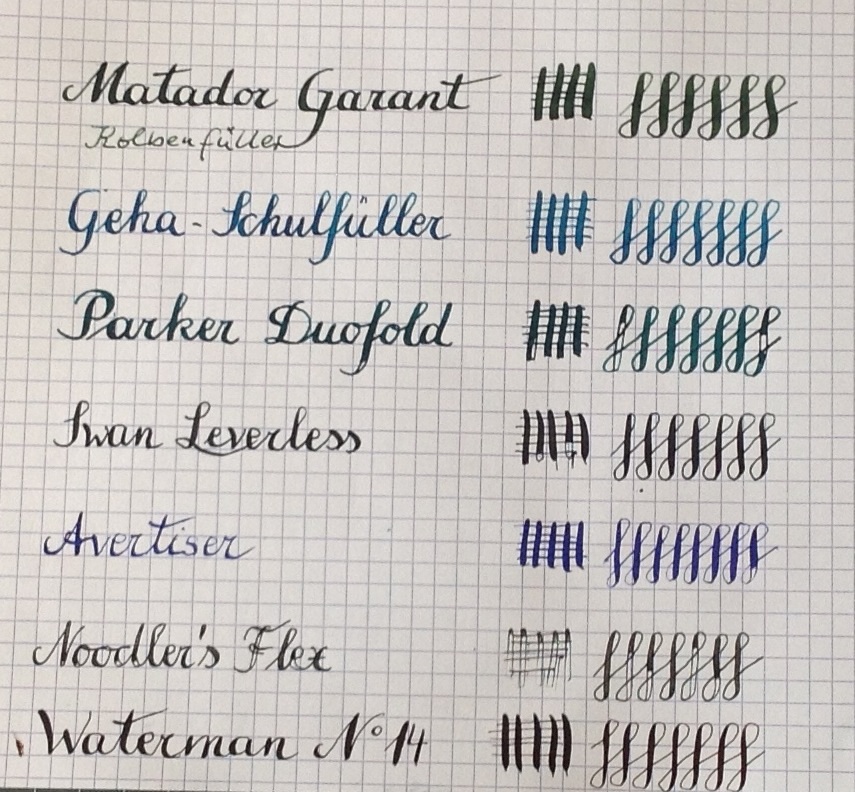 Matador Garant
Kolbenfüller
Geha-Schulfüller
Parker Duofold
Swan Leverless
Avertiser
Noodler's Flex
Waterman Nº 14